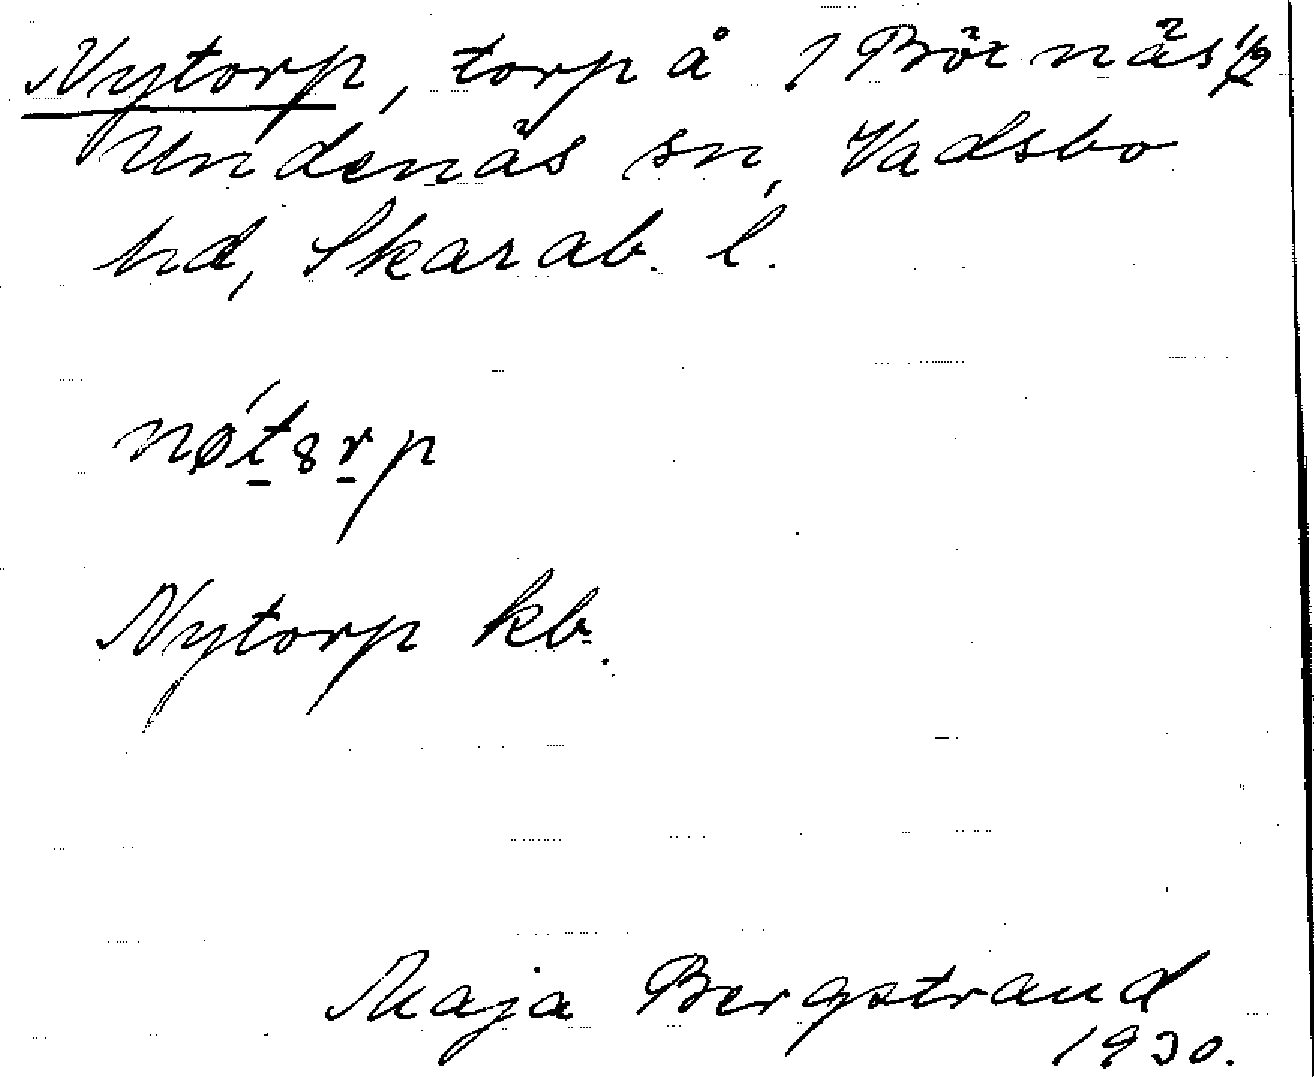 Nytorp, torp å 1 Bötnäs 1/2
Undenäs sn, Vadsbo
hd, Skarab. l.
nøt8rp
Nytorp kb.
Maja Bergstrand
1930.